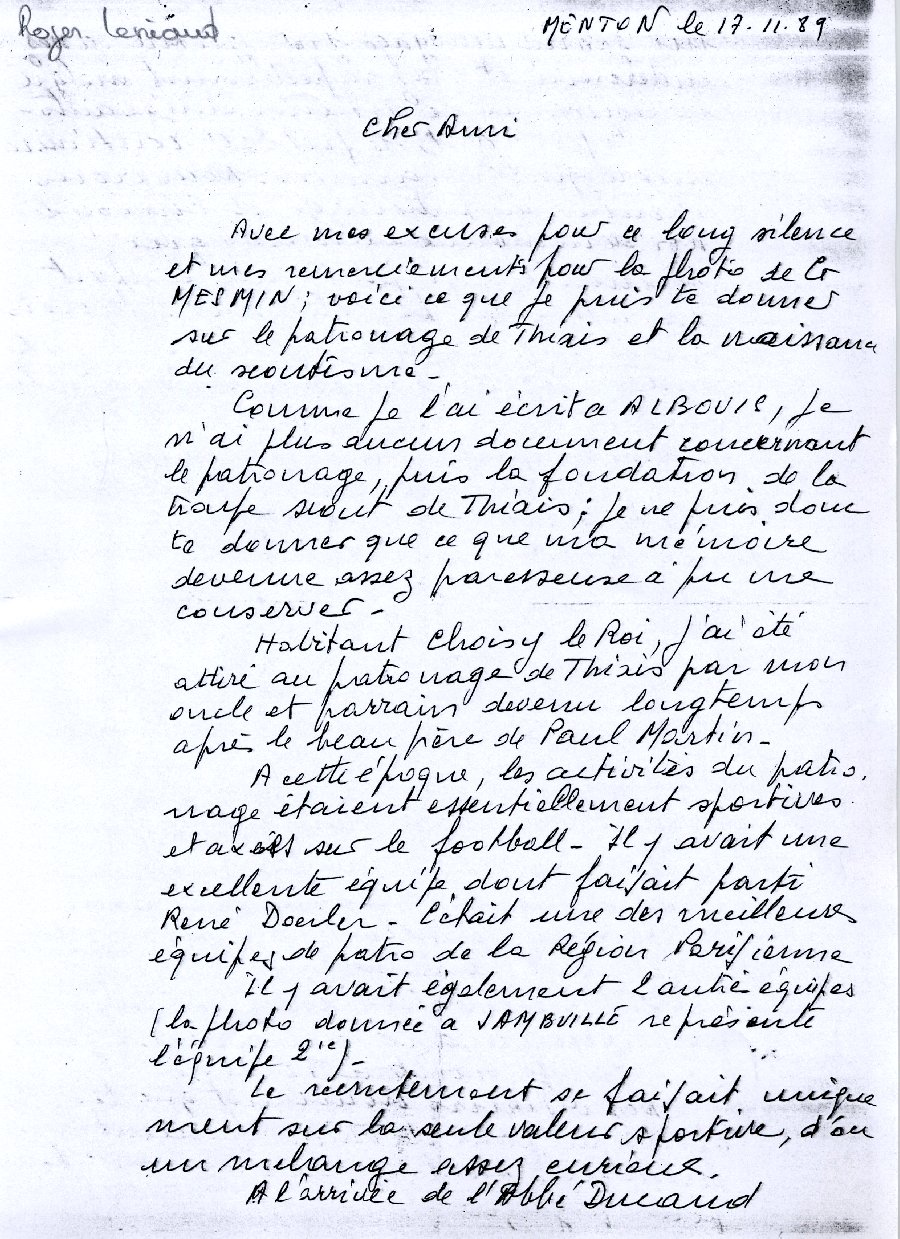 Roger
MENTON le 17.11.89
Cher Ami
Avec mes excuses pour ce long silence
et mes remerciements pour la photo de Cr
MESMIN; voici ce que je puis te donner
sur le patronage de Thiais et la naissance
du scoutisme -
Comme je l'ai écrit a ALBOUIS, je
n'ai plus aucun document concernant
le patronage, puis la fondation de la
troupe scout de Thiais; je ne puis donc
te donner que ce que ma mémoire
devenue assez paresseuse a pu me
conserver -
Habitant Choisy le Roi, j'ai été
attiré au patronage de Thiais par mon
oncle et parrain devenu longtemps
après le beau père de Paul Martin -
A cette époque, les activités du patro
nage étaient essentiellement sportives
et axées sur le football - Il y avait une
excellente équipe dont faisait parti
René - C'était une des meilleures
équipes de patro de la Région Parisienne
Il y avait également 2 autre équipes
(la photo donnée a JAMBVILLE représente
l'équipe 2ie) -
Le recrutement se faisait unique
ment sur la seule valeur sportive, d'ou
un mélange assez curieux.
A l'arrivée de l'Abbé